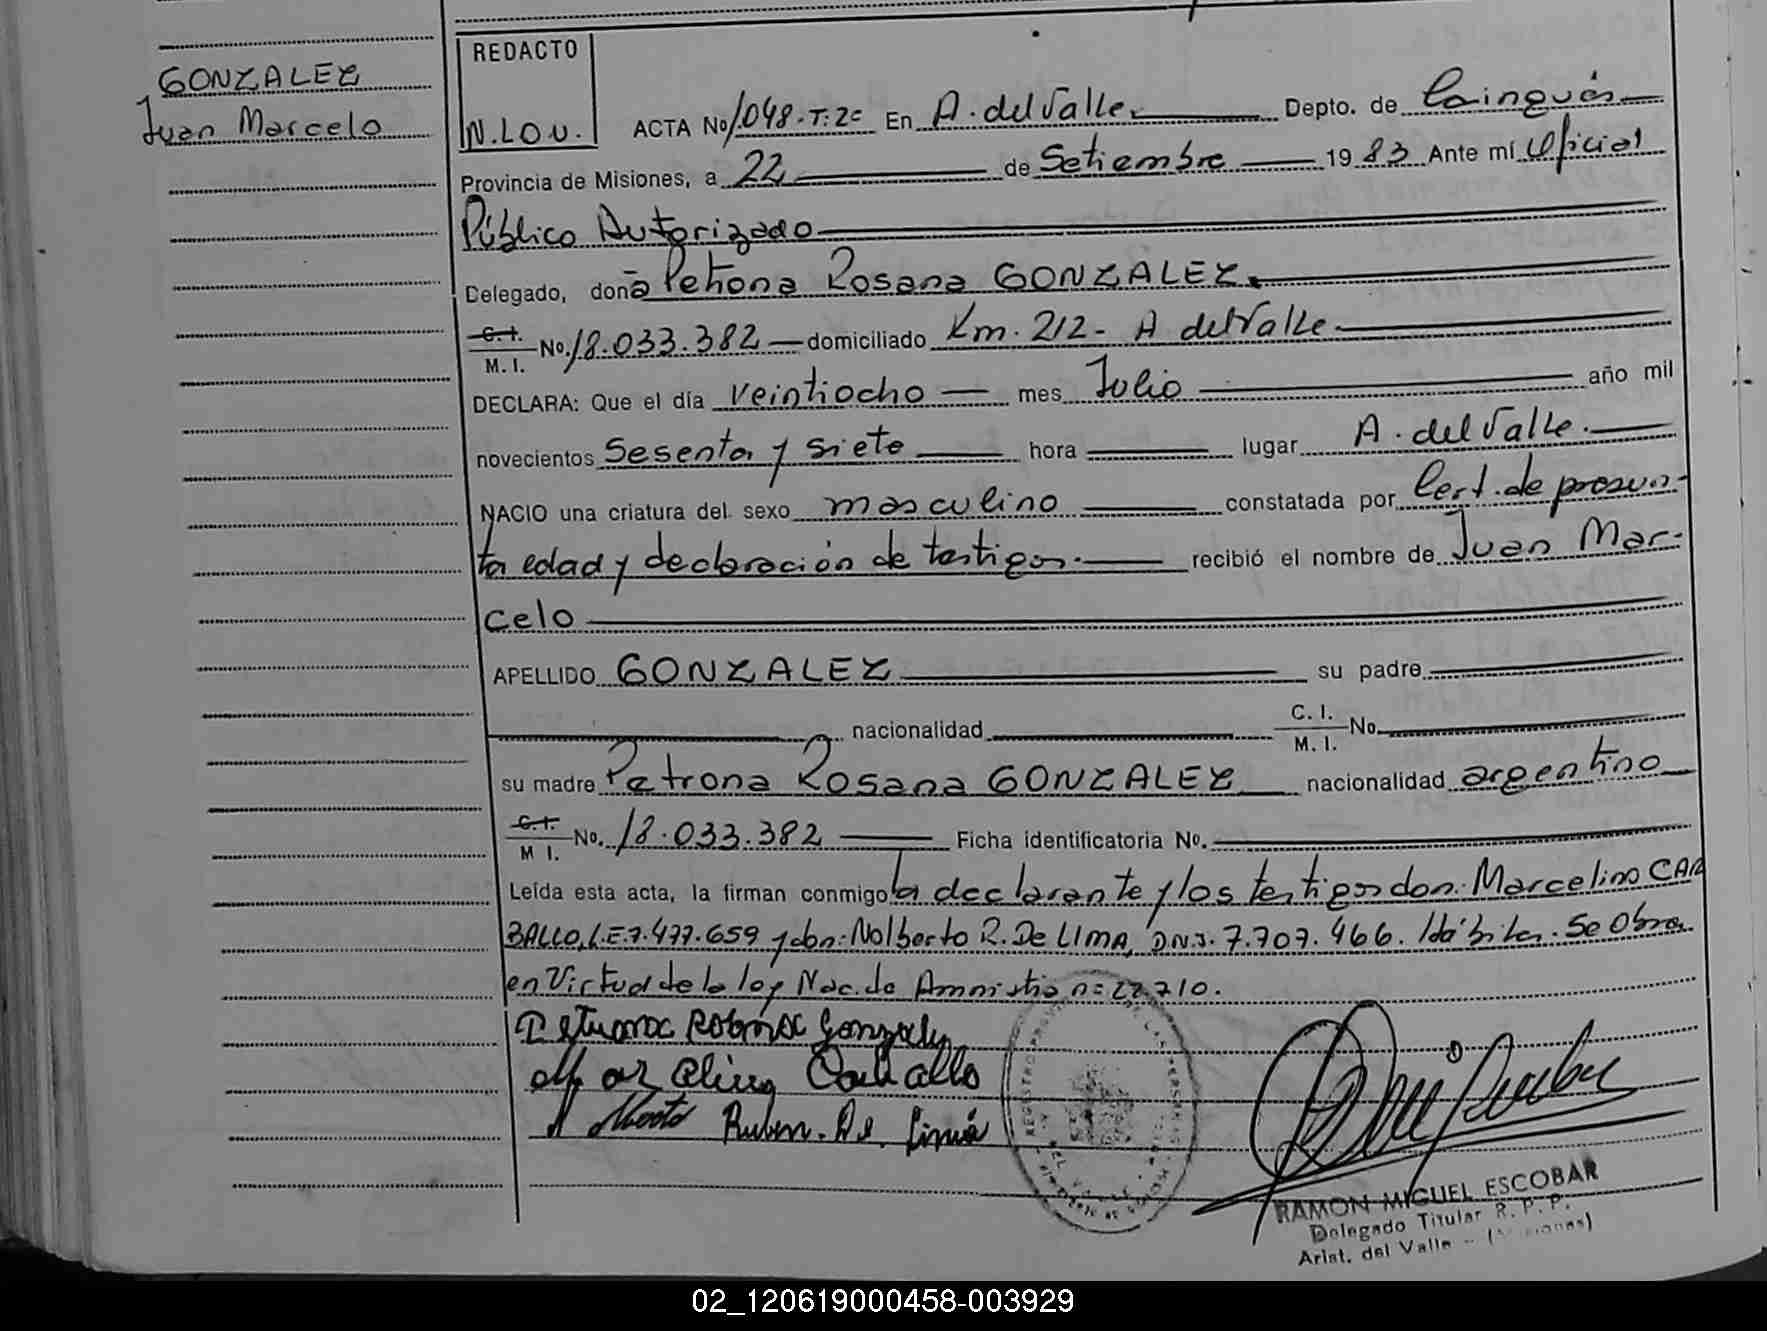 GONZALEZ
Juan Marcelo
REDACTO
N.LOU.
ACTA No 1.048-T:2º En A. del Valle. Depto. de Cainguás
Provincia de Misiones, a 22 de Setiembre 1983 Ante mí Oficial
Público Autorizado
Delegado, doña Petrona Rosana GONZALEZ.
C.I. M.I. No. 18.033.382 domiciliado Km. 212- A del Valle
DECLARA: Que el día veintiocho mes Julio año mil
novecientos Sesenta y siete hora lugar A. del Valle.
NACIO una criatura del sexo masculino constatada por Cert. de presun-
ta edad y declaración de testigos. recibió el nombre de Juan Mar-
celo
APELLIDO GONZALEZ su padre
nacionalidad C. I. M. I. No.
su madre Petrona Rosana GONZALEZ nacionalidad argentino
C.I. M I. No. 18.033.382 Ficha identificatoria No.
Leída esta acta, la firman conmigo la declarante y los testigos don: Marcelino CAR
BALLO, L.E.7.477.659 y don: Nolberto R. De LIMA, D.N.I. 7.707.466. Hábiles. Se Obra
en Virtud de la ley Nac. de Amnistia nº 22.710.
Marcelino Carballo
Ruben. De. Lima
RAMON MIGUEL ESCOBAR
Delegado Titular R. P. P.
Arist. del Valle - (Misiones)
02_120619000458-003929